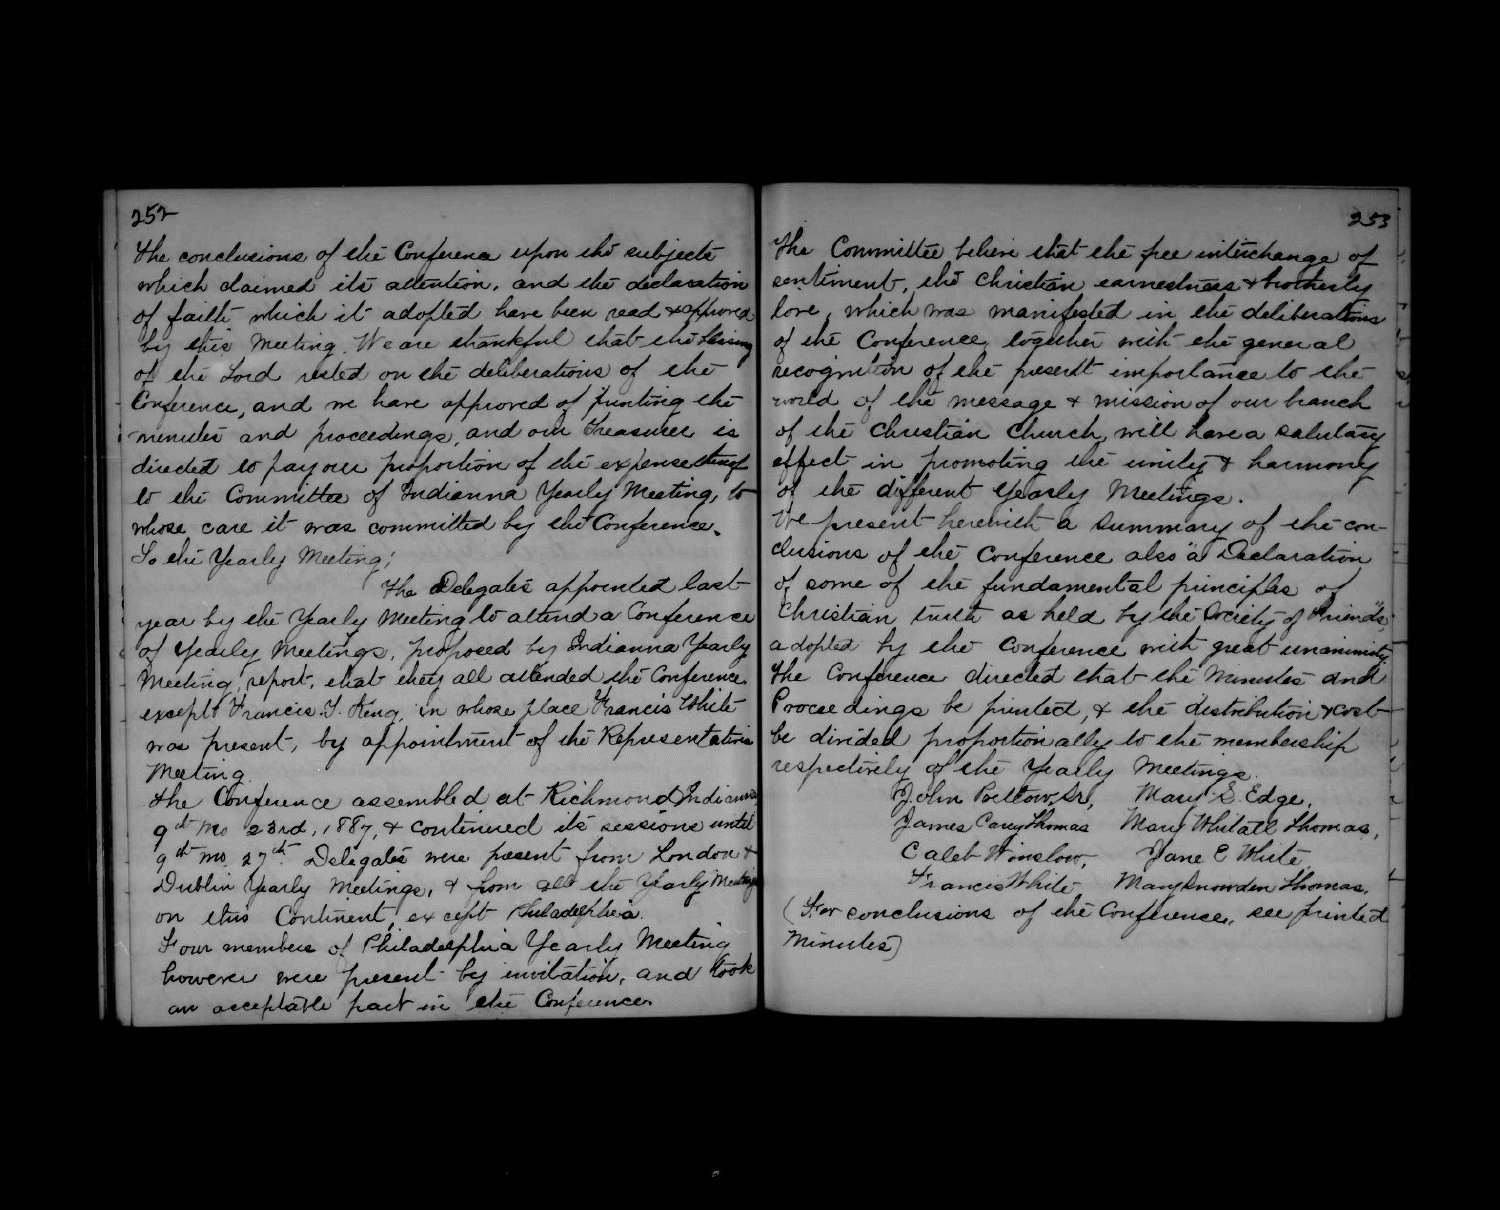 252
The conclusions of the Conference upon the subjects
which claimed its attention, and the declaration
of faith which it adopted have been read & approved
by this Meeting. We are thankful that the blessing
of the Lord rested on the deliberations of the
Conference, and we have approved of printing the
minutes and proceedings, and our Treasurer is
directed to pay our proportion of the expense thereof
to the Committee of Indianna Yearly Meeting, to
whose care it was committed by the Conference.
To the Yearly Meeting;
The Delegates appointed last
year by the Yearly Meeting to attend a Conference
of Yearly Meetings, proposed by Indianna Yearly
Meeting, report, that they all attended the Conference
except Francis T. King, in whose place Francis White
was present, by appointment of the Representative
Meeting.
The Conference assembled at Richmond Indianna
9th mo 23rd, 1887, & continued its sessions until
9th mo. 27th. Delegates were present from London &
Dublin Yearly Meetings, & from all the Yearly Meetings
on this Continent, except Philadelphia.
Four members of Philadelphia Yearly Meeting
however were present by invitation, and took
an acceptable part in the Conference.
253
The Committee believe that the free interchange of
sentiment, the Christian earnestness & brotherly
love, which was manifested in the deliberations
of the Conference, together with the general
recognition of the present importance to the
world of the message & mission of our branch
of the Christian Church, will have a salutary
effect in promoting the unity & harmony
of the different Yearly Meetings.
We present herewith a summary of the con-
clusions of the Conference also "a Declaration
of some of the fundamental principles of
Christian truth as held by the Society of Friends",
adopted by the Conference with great unanimity
The Conference directed that the Minutes and
Proceedings be printed, & the distribution & cost
be divided proportionally to the membership
respectively of the Yearly Meetings.
John Pretlow, Sr, Mary S. Edge,
James Carey Thomas Mary Whitall Thomas,
Caleb Winslow, Jane E White
Francis White Mary Snowden Thomas.
(For conclusions of the Conference, see printed
Minutes)